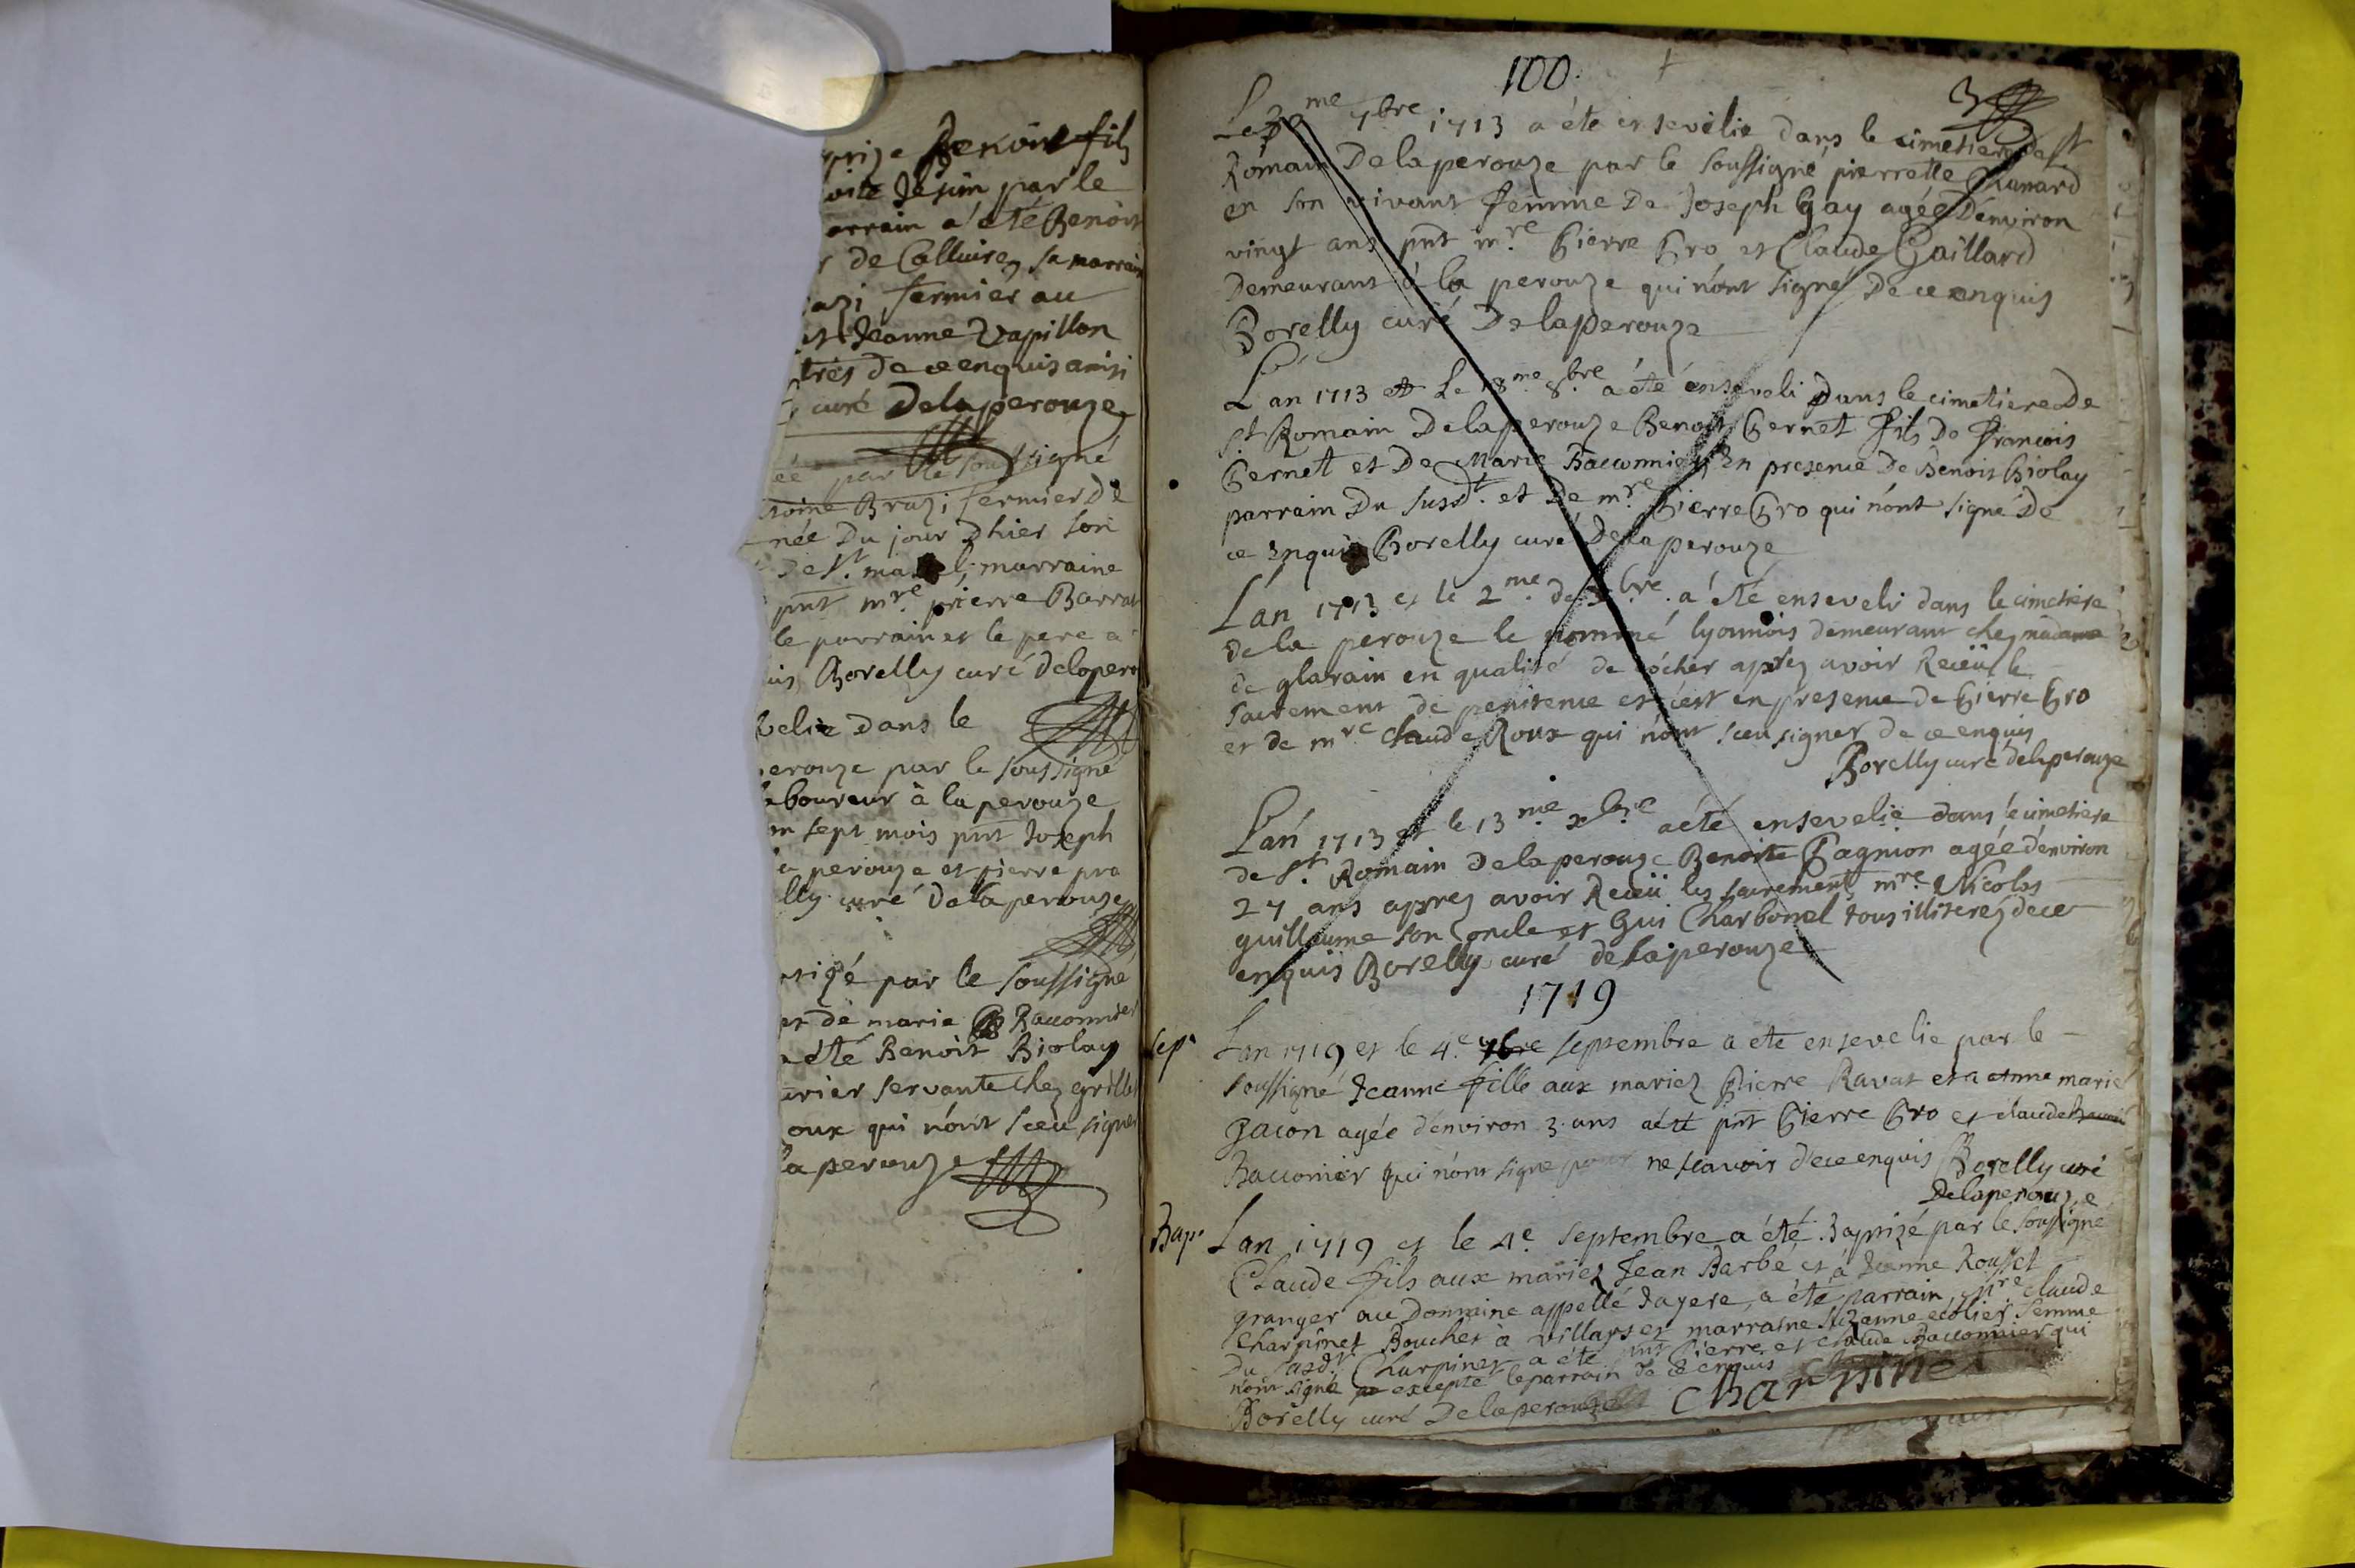 prize Benoit fils
par le
arrain a été Benoit
de Calluire, sa marrain
azi fermier au
et Jeanne Vapillon
trés de ce enquis ainsi
curé Delaperouze
ée par le soussigné
toine Brazi fermier de
née Du jour Dhier son
De St. marraine
pnt mre. pierre Barrat
le parrain et le pere a
uis Borelly curé delapero
velie Dans le
erouze par le soussigné
aboureur à la perouze
on sept mois pnt Joseph
a perouze et pierre pra
lly curé Delaperouze
tizé par le soussigné
et de marie Baconnier
a été Benoit Biolay
urier servante chez grillet
oux qui n'ont sceu signer
la perouze
100.
3
Le me 7bre 1713 a éte ensevelie dans le cimetiere de St
Romain Delaperouze par le soussigné pierrette Chanard
en son vivant femme De Joseph Gay agée Denviron
vingt ans pnt mre Pierre Pro et Claude Gaillard
Demeurans à la perouze qui n'ont signé De ce enquis
Borelly curé Delaperouze
L'an 1713 et Le 18me 8bre a été enseveli Dans le cimetiere De
St Romain Delaperouze Benoit Pernet fils De francois
Pernet et De Marie Baconnier, En presence De Benoit Biolay
parrain Du susdt. et De mre. Pierre Pro qui n'ont signé De
ce Enquis Borelly curé Delaperouze
L'an 1713 et le 2me de bre. a été enseveli dans le cimetiere
de la perouze le nommé lyonnois demeurant chez madame
de glarain en qualité de cocher aprez avoir Receü le
sacrement de penitence et c'est en presence de Pierre Pro
et de mre Claude Roux qui n'ont sceu signer de ce enquis
Borelly curé delaperouze
L'an 1713 et le 13me xbre a été ensevelie dans le cimetiere
de St. Romain Delaperouze Benoite Pagnion agée d'environ
27 ans aprez avoir Receü les sacremens, mre. Nicolas
guillaume son oncle et Gui Charbonel tous illiterez dece
enquis Borelly curé delaperouze
1719
Sep.
L'an 1719 et le 4.e 7bre septembre a ete ensevelie par le
soussigné Jeanne fille aux mariez Pierre Ravat et a anne marie
Jacon agée d'environ 3 ans a été pnt Pierre Pro et claude
Baconier qui n'ont signe pour ne scavoir de ce enquis Borelly curé
Delaperouze
Bap.
L'an 1719 et le 4e. Septembre a été Baptizé par le soussigné
Claude fils aux mariez Jean Barbe et à Jeanne Rousset
granger au Domaine appellé Jayere, a été parrain, mre claude
Charpinet Boucher à villars et marraine Suzanne ecolier femme
Du susdt Charpinet a été pnt Pierre et claude Baconnier qui
n'ont signé excepté le parrain de ce enquis
Borelly curé Delaperouze Charpinet